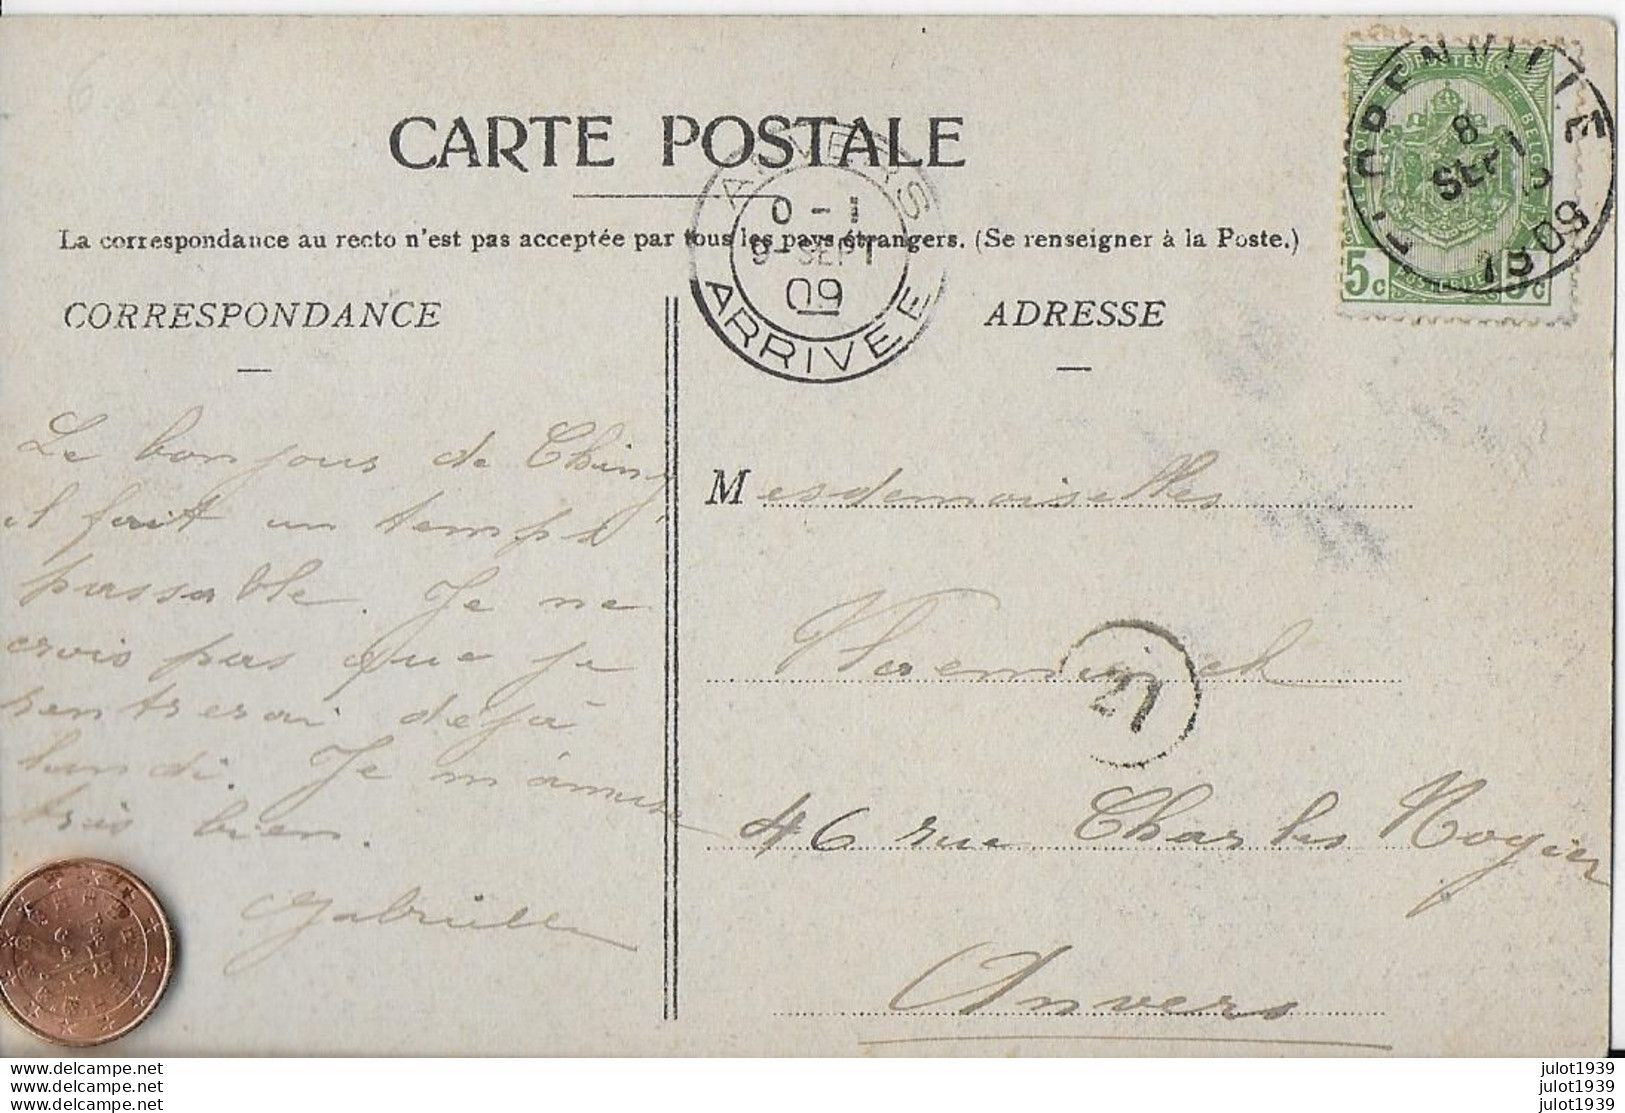 CARTE POSTALE
La correspondance au recto n'est pas acceptée par tous les pays étrangers. (Se renseigner à la Poste.)
CORRESPONDANCE
ADRESSE
POSTES
BELGIQUE
5c 5c
FLORENVILLE
8
SEPT
12
1909
ANVERS
0 - 1
9 SEPT
09
ARRIVEE
Le bonjour de Chiny
il fait un temps
passable. Je ne
crois pas que je
rentrerai dejà
lundi. Je m'amuse
très bien.
Gabrielle
Mesdemoiselles
Vlaeminck
21
46 rue Charles Rogier
Anvers
www.delcampe.net
www.delcampe.net
www.delcampe.net
julot1939
julot1939
julot1939